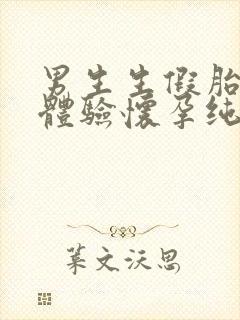 男生生假胎
體驗懷孕纯
葉文沃思